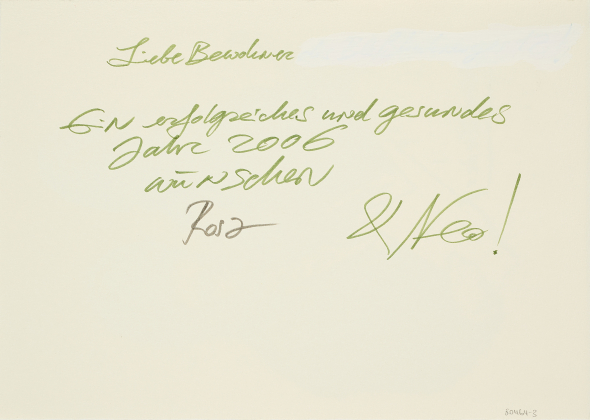 Liebe Bewohner
Ein erfolgreiches und gesundes
Jahr 2006
wünschen
Rosa & Neo!